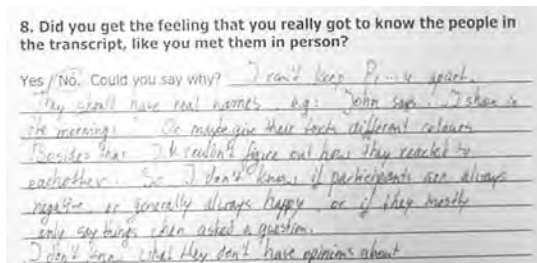 8. Did you get the feeling that you really got to know the people in
the transcript, like you met them in person?
Yes / No. Could you say why? I can't keep apart.
They should have real names e.g: John says I shave in
the morning. Or maybe give their texts different colours
Besides that I couldn't figure out how they reacted to
eachother. So I don't know if participants are always
negative or generally always happy or if they mostly
only say things when asked a question.
I don't know what they don't have opinions about